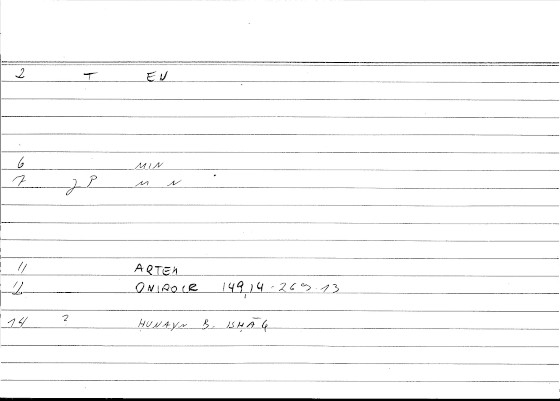 2 T EU
6 MIN
7 JP M N
11 ARTEM
12 ONIROCR 149,14-263.13
14 2 HUNAYN B. ISHĀQ